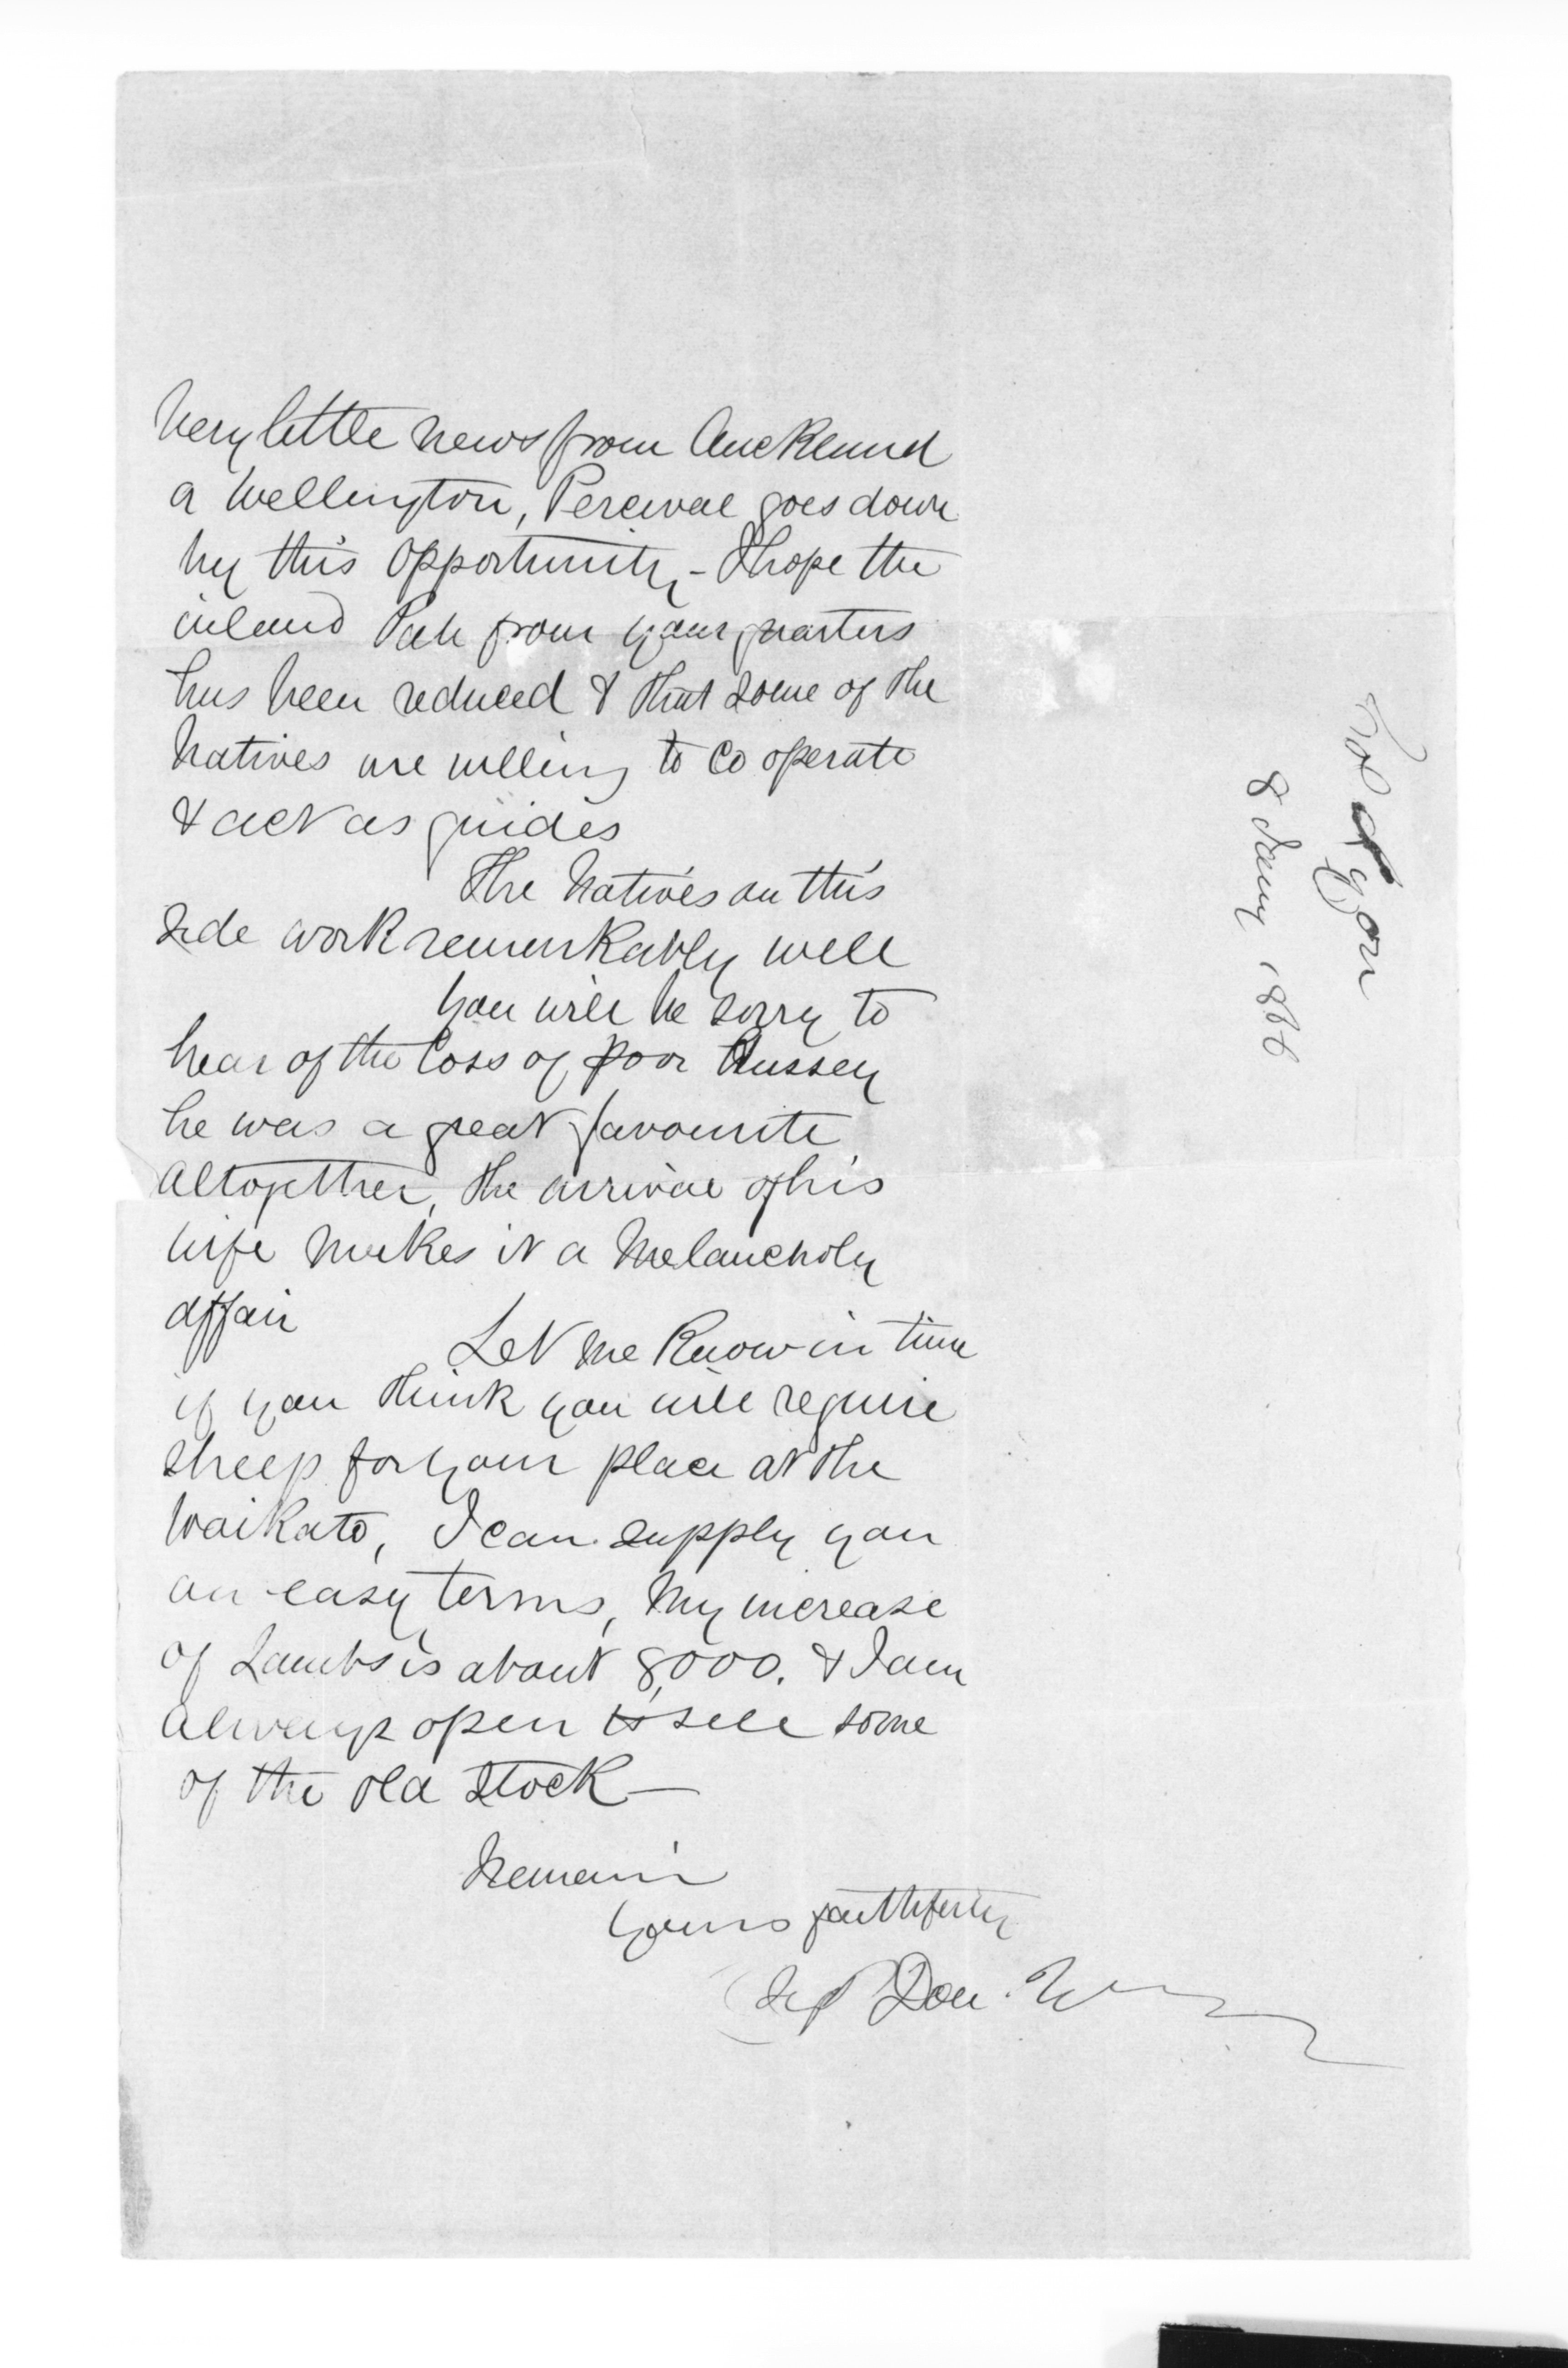 Very little news from Auckland
a Wellington, Percival goes down
by this opportunity - I hope the
inland Pah from your quarters
has been reduced & that some of the
Natives are willing to Co operate
& act as guides
The Natives on this
side work remarkably well
You will be sorry to
hear of the loss of poor Hussey
he was a great favourite
altogether, the arrival of his
wife makes it a Melancholy
affair
Let me Know in time
if you think you will require
sheep for your place at the
Waikato, I can supply you
on easy terms, My increase
of Lambs is about 8,000. & I am
always open to sell some
of the old stock —
Remain
Yours faithfully
Don.
Col Lyon
8 Jany 1866